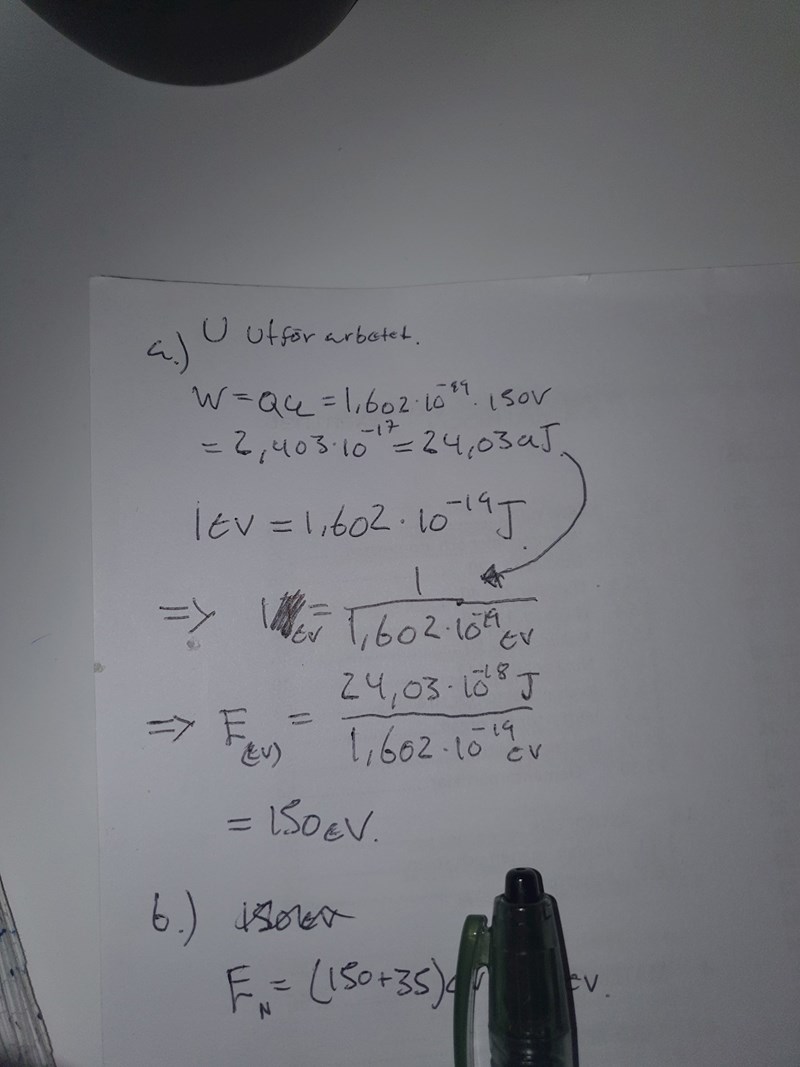 a.) U utför arbetet.
W = QU = 1,602·10⁻¹⁹·150V
= 2,403·10⁻¹⁷ = 24,03aJ.
1eV = 1,602·10⁻¹⁹J.
=> 1 eV = 1 / 1,602·10⁻¹⁹ eV
=> E(eV) = 24,03·10⁻¹⁸ J / 1,602·10⁻¹⁹ eV
= 150eV.
b.) 150eV
E_N = (150+35) eV.